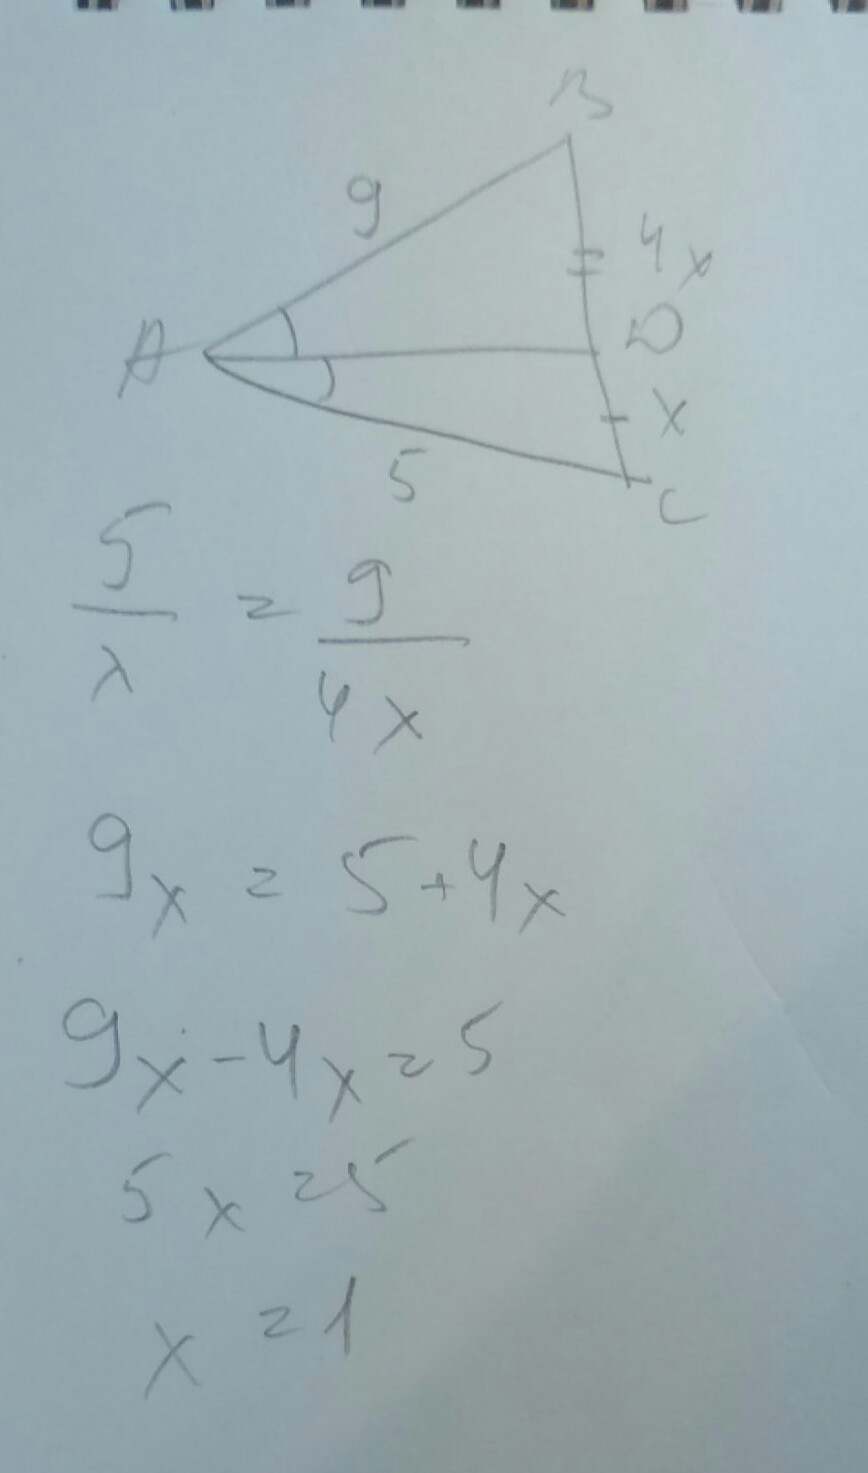 B
9
4x
A
D
x
5
C
5/x = 9/4x
9x = 5+4x
9x-4x=5
5x=5
x=1